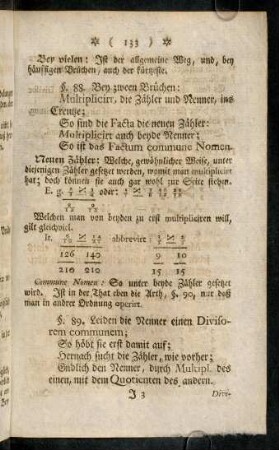 * ( 133 ) *
Bey vielen: Ist der allgemeine Weg, und, bey
häuffigen Brüchen, auch der kürtzeste.
§. 88. Bey zween Brüchen:
Multiplicirt, die Zähler und Nenner, ins
Creutze;
So sind die Facta die neuen Zähler:
Multiplicirt auch beyde Nenner;
So ist das Factum commune Nomen.
Neuen Zähler: Welche, gewöhnlicher Weise, unter
diejenigen Zähler gesetzet werden, womit man multipliciret
hat; doch können sie auch gar wohl zur Seite stehen.
E. g.
oder:
Welchen man von beyden zu erst multipliciren will,
gilt gleichviel.
It. abbrevirt:
126 140 9 10
210 210 15 15
Commune Nomen: So unter beyde Zähler gesetzet
wird. Ist in der That eben die Arth, §. 90, nur daß
man in andrer Ordnung operirt.
§. 89. Leiden die Nenner einen Diviso-
rem communem;
So hebt sie erst damit auf;
Hernach sucht die Zähler, wie vorher;
Endlich den Nenner, durch Multipl. des
einen, mit dem Quotienten des andern.
J 3 Divi-